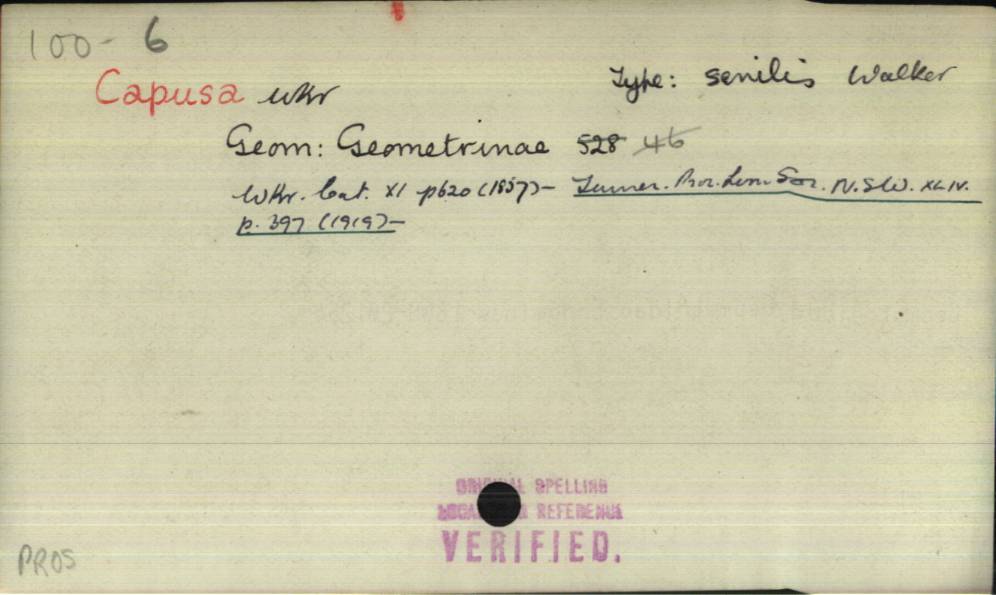 100-6
Capusa Wkr Type: senilis Walker
Geom: Geometrinae 528 46
Wkr. Cat. XI p620 (1857)- Turner. Proc. Linn. Soc. N.S.W. XLIV.
p. 397 (1919)-
SPELLING
REFERENCE
VERIFIED.
PROS